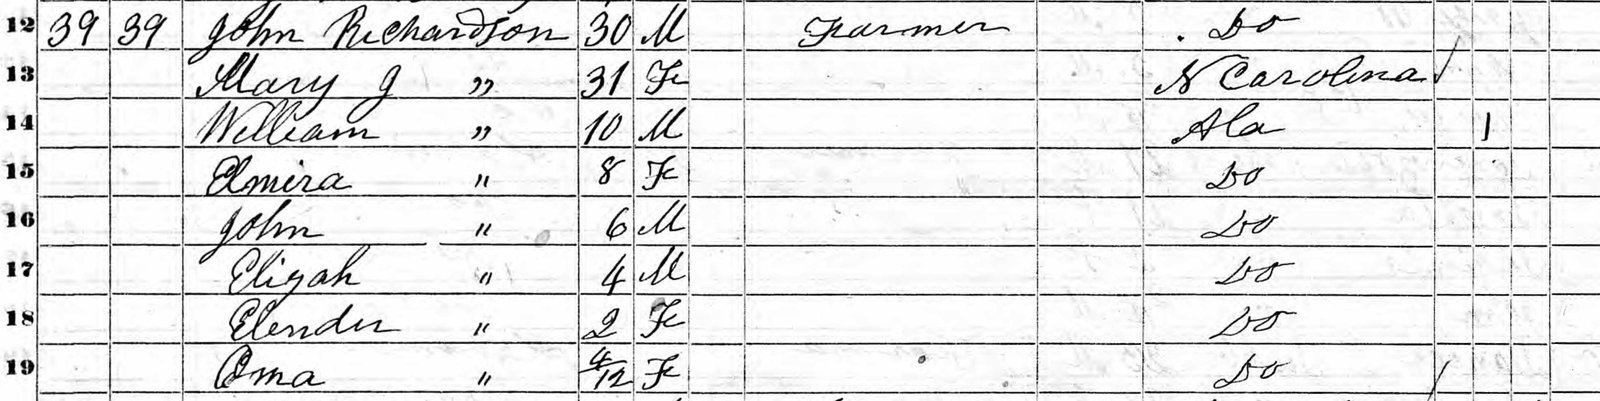 12 39 39 John Richardson 30 M Farmer Do
13 Mary J " 31 F N Carolina
14 William " 10 M Ala 1
15 Elmira " 8 F Do
16 John " 6 M Do
17 Elizah " 4 M Do
18 Elender " 2 F Do
19 Oma " 4/12 F Do